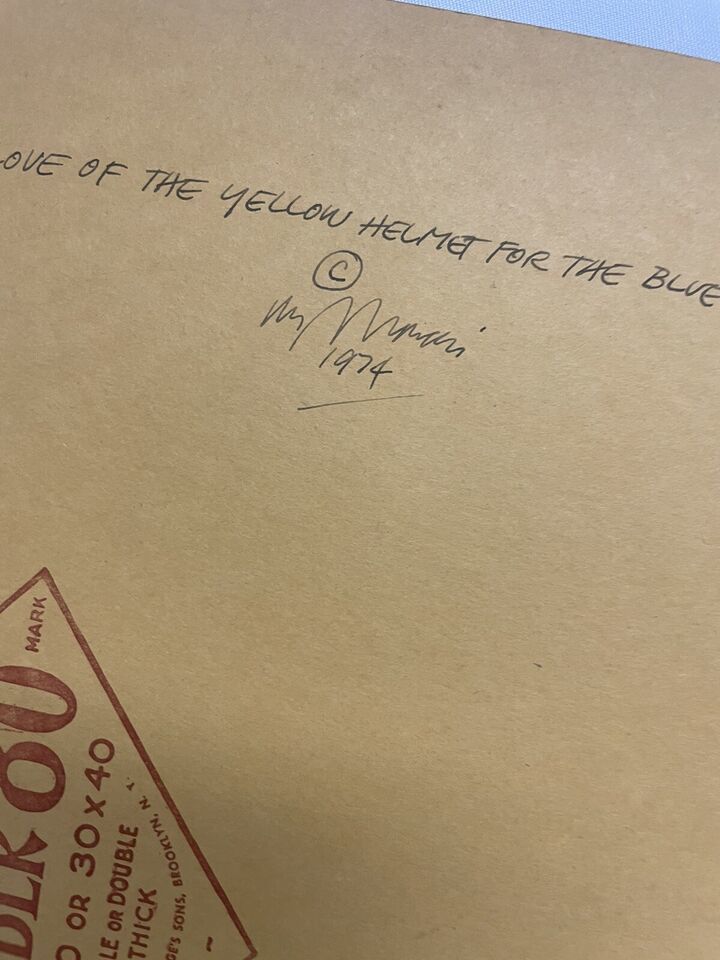 LOVE OF THE YELLOW HELMET FOR THE BLUE
©
1974
MARK
80
OR 30 X 40
LE OR DOUBLE
THICK
GE'S SONS, BROOKLYN, N. Y.